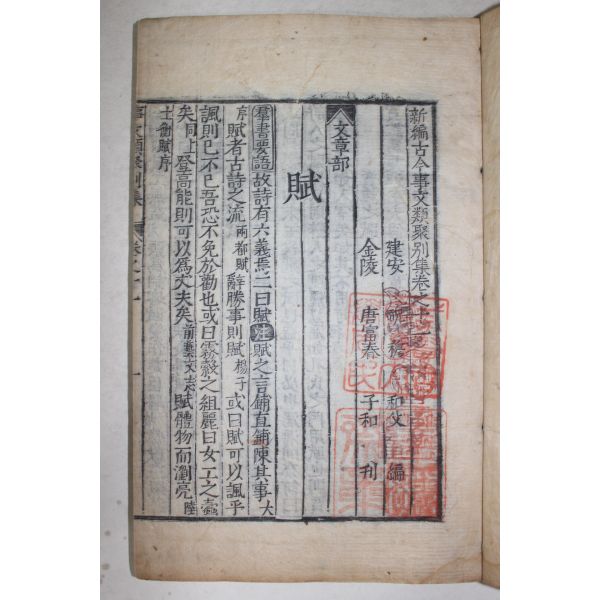 新編古今事文類聚別集卷之十
建安 祝穆 和父 編
金陵 唐富春 子和 刊
文章部
賦
羣書要語故詩有六義焉二曰賦注賦之言鋪直鋪陳其事大
序賦者古詩之流兩都賦辭勝事則賦楊子或曰賦可以諷乎
諷則已不已吾恐不免於勸也或曰霧縠之組麗曰女工之蠹
矣同上登高能則可以爲大夫矣前藝文志賦體物而瀏亮陸
士衡賦序
事文類聚別集 卷之十